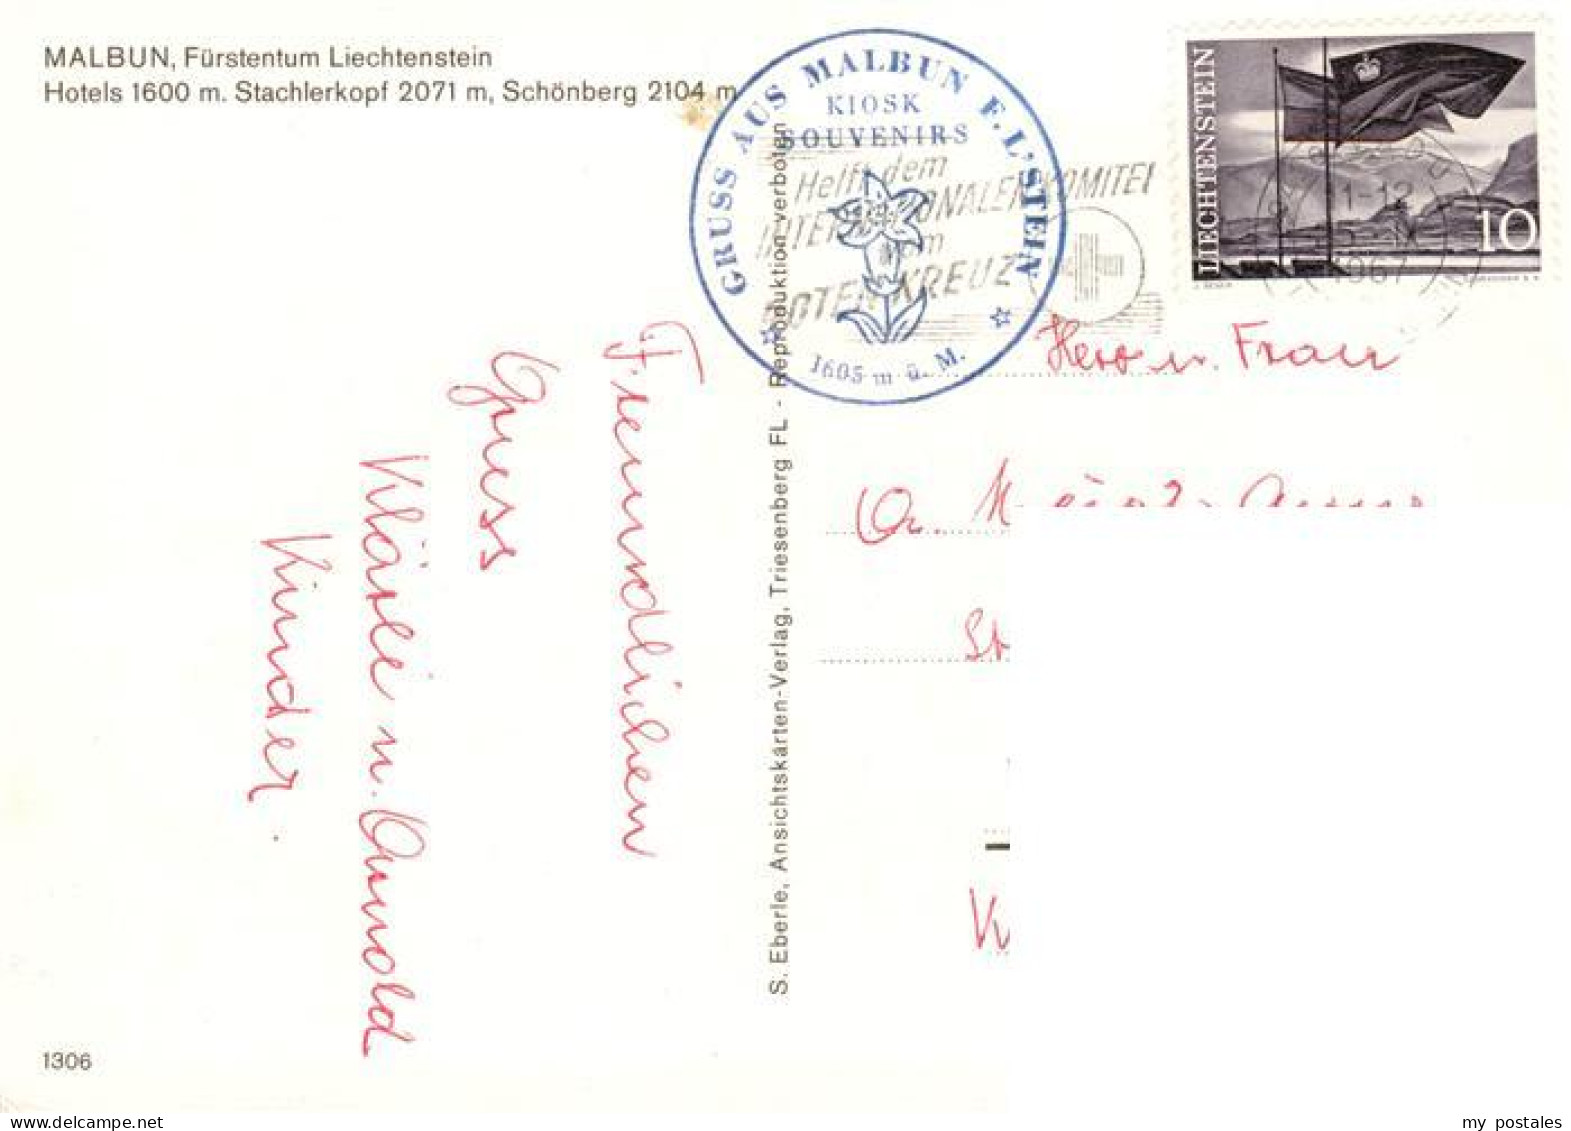 MALBUN, Fürstentum Liechtenstein
Hotels 1600 m. Stachlerkopf 2071 m, Schönberg 2104 m
GRUSS AUS MALBUN F. L'STEIN
KIOSK
SOUVENIRS
1605 m ü. M.
Helft dem
INTERNATIONALEN KOMITEE
vom
ROTEN KREUZ
LIECHTENSTEIN
10
11-12
1967
Freundlichen
Gruss
Kläre u. Arnold
Kinder.
S. Eberle, Ansichtskarten-Verlag, Triesenberg FL - Reproduktion verboten
Herr u. Frau
St
K
1306
my postales